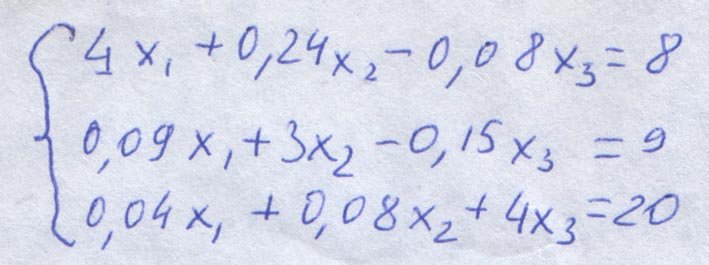 4x₁ + 0,24x₂ - 0,08x₃ = 8
0,09x₁ + 3x₂ - 0,15x₃ = 9
0,04x₁ + 0,08x₂ + 4x₃ = 20